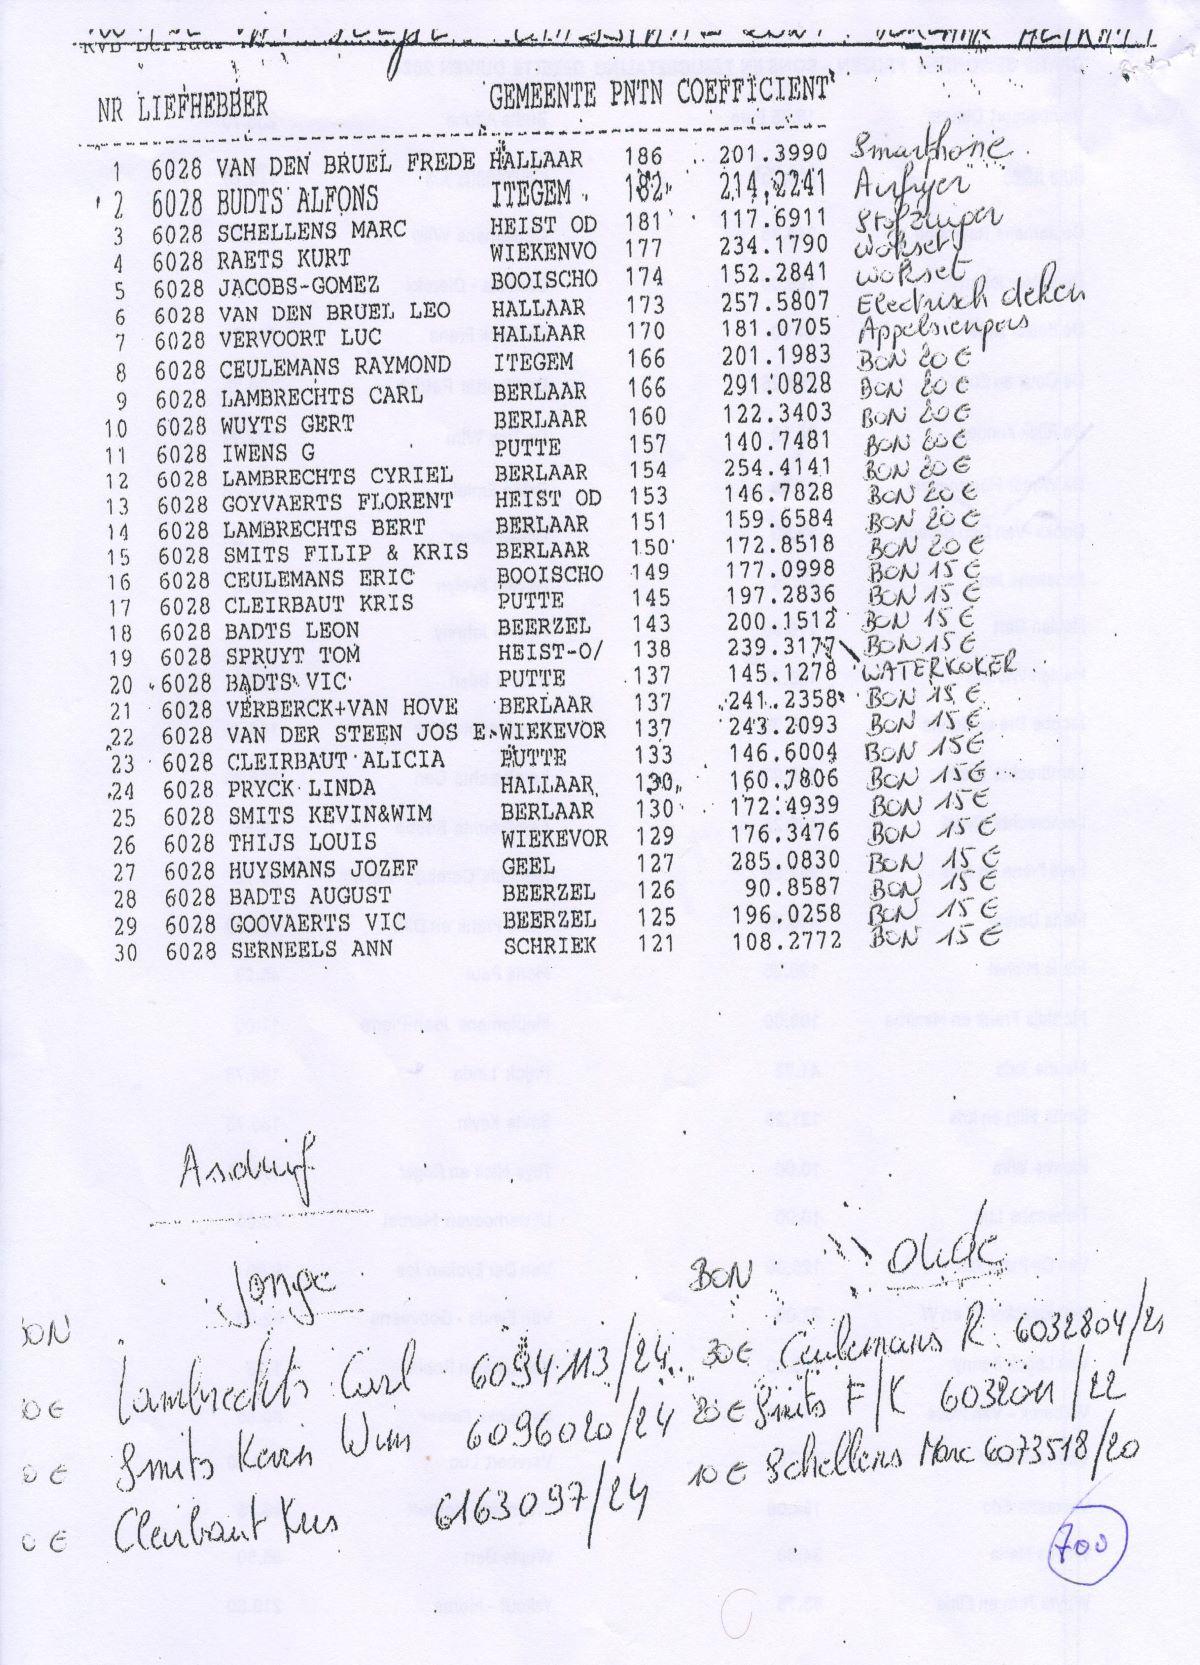 RVB Berlaar
NR LIEFHEBBER GEMEENTE PNTN COEFFICIENT
1 6028 VAN DEN BRUEL FREDE HALLAAR 186 201.3990 Smartphone
2 6028 BUDTS ALFONS ITEGEM 182 214.2241 Airfryer
3 6028 SCHELLENS MARC HEIST OD 181 117.6911 Stofzuiger
4 6028 RAETS KURT WIEKENVO 177 234.1790 Wokset
5 6028 JACOBS-GOMEZ BOOISCHO 174 152.2841 Wokset
6 6028 VAN DEN BRUEL LEO HALLAAR 173 257.5807 Electrisch deken
7 6028 VERVOORT LUC HALLAAR 170 181.0705 Appelsienpers
8 6028 CEULEMANS RAYMOND ITEGEM 166 201.1983 BON 20 €
9 6028 LAMBRECHTS CARL BERLAAR 166 291.0828 BON 20 €
10 6028 WUYTS GERT BERLAAR 160 122.3403 BON 20 €
11 6028 IWENS G PUTTE 157 140.7481 BON 20 €
12 6028 LAMBRECHTS CYRIEL BERLAAR 154 254.4141 BON 20 €
13 6028 GOYVAERTS FLORENT HEIST OD 153 146.7828 BON 20 €
14 6028 LAMBRECHTS BERT BERLAAR 151 159.6584 BON 20 €
15 6028 SMITS FILIP & KRIS BERLAAR 150 172.8518 BON 20 €
16 6028 CEULEMANS ERIC BOOISCHO 149 177.0998 BON 15 €
17 6028 CLEIRBAUT KRIS PUTTE 145 197.2836 BON 15 €
18 6028 BADTS LEON BEERZEL 143 200.1512 BON 15 €
19 6028 SPRUYT TOM HEIST-O/ 138 239.3177 BON 15 €
20 6028 BADTS VIC PUTTE 137 145.1278 WATERKOKER
21 6028 VERBERCK+VAN HOVE BERLAAR 137 241.2358 BON 15 €
22 6028 VAN DER STEEN JOS E. WIEKEVOR 137 243.2093 BON 15 €
23 6028 CLEIRBAUT ALICIA PUTTE 133 146.6004 BON 15 €
24 6028 PRYCK LINDA HALLAAR 130 160.7806 BON 15 €
25 6028 SMITS KEVIN&WIM BERLAAR 130 172.4939 BON 15 €
26 6028 THIJS LOUIS WIEKEVOR 129 176.3476 BON 15 €
27 6028 HUYSMANS JOZEF GEEL 127 285.0830 BON 15 €
28 6028 BADTS AUGUST BEERZEL 126 90.8587 BON 15 €
29 6028 GOOVAERTS VIC BEERZEL 125 196.0258 BON 15 €
30 6028 SERNEELS ANN SCHRIEK 121 108.2772 BON 15 €
Asduif
Jonge BON Oude
BON
0 € Lambrechts Carl 6094113/24 30 € Ceulemans R. 6032804/21
0 € Smits Kevin Wim 6096020/24 20 € Smits F/K 6032011/22
0 € Cleirbaut Kris 6163097/24 10 € Schellens Marc 6073518/20
700